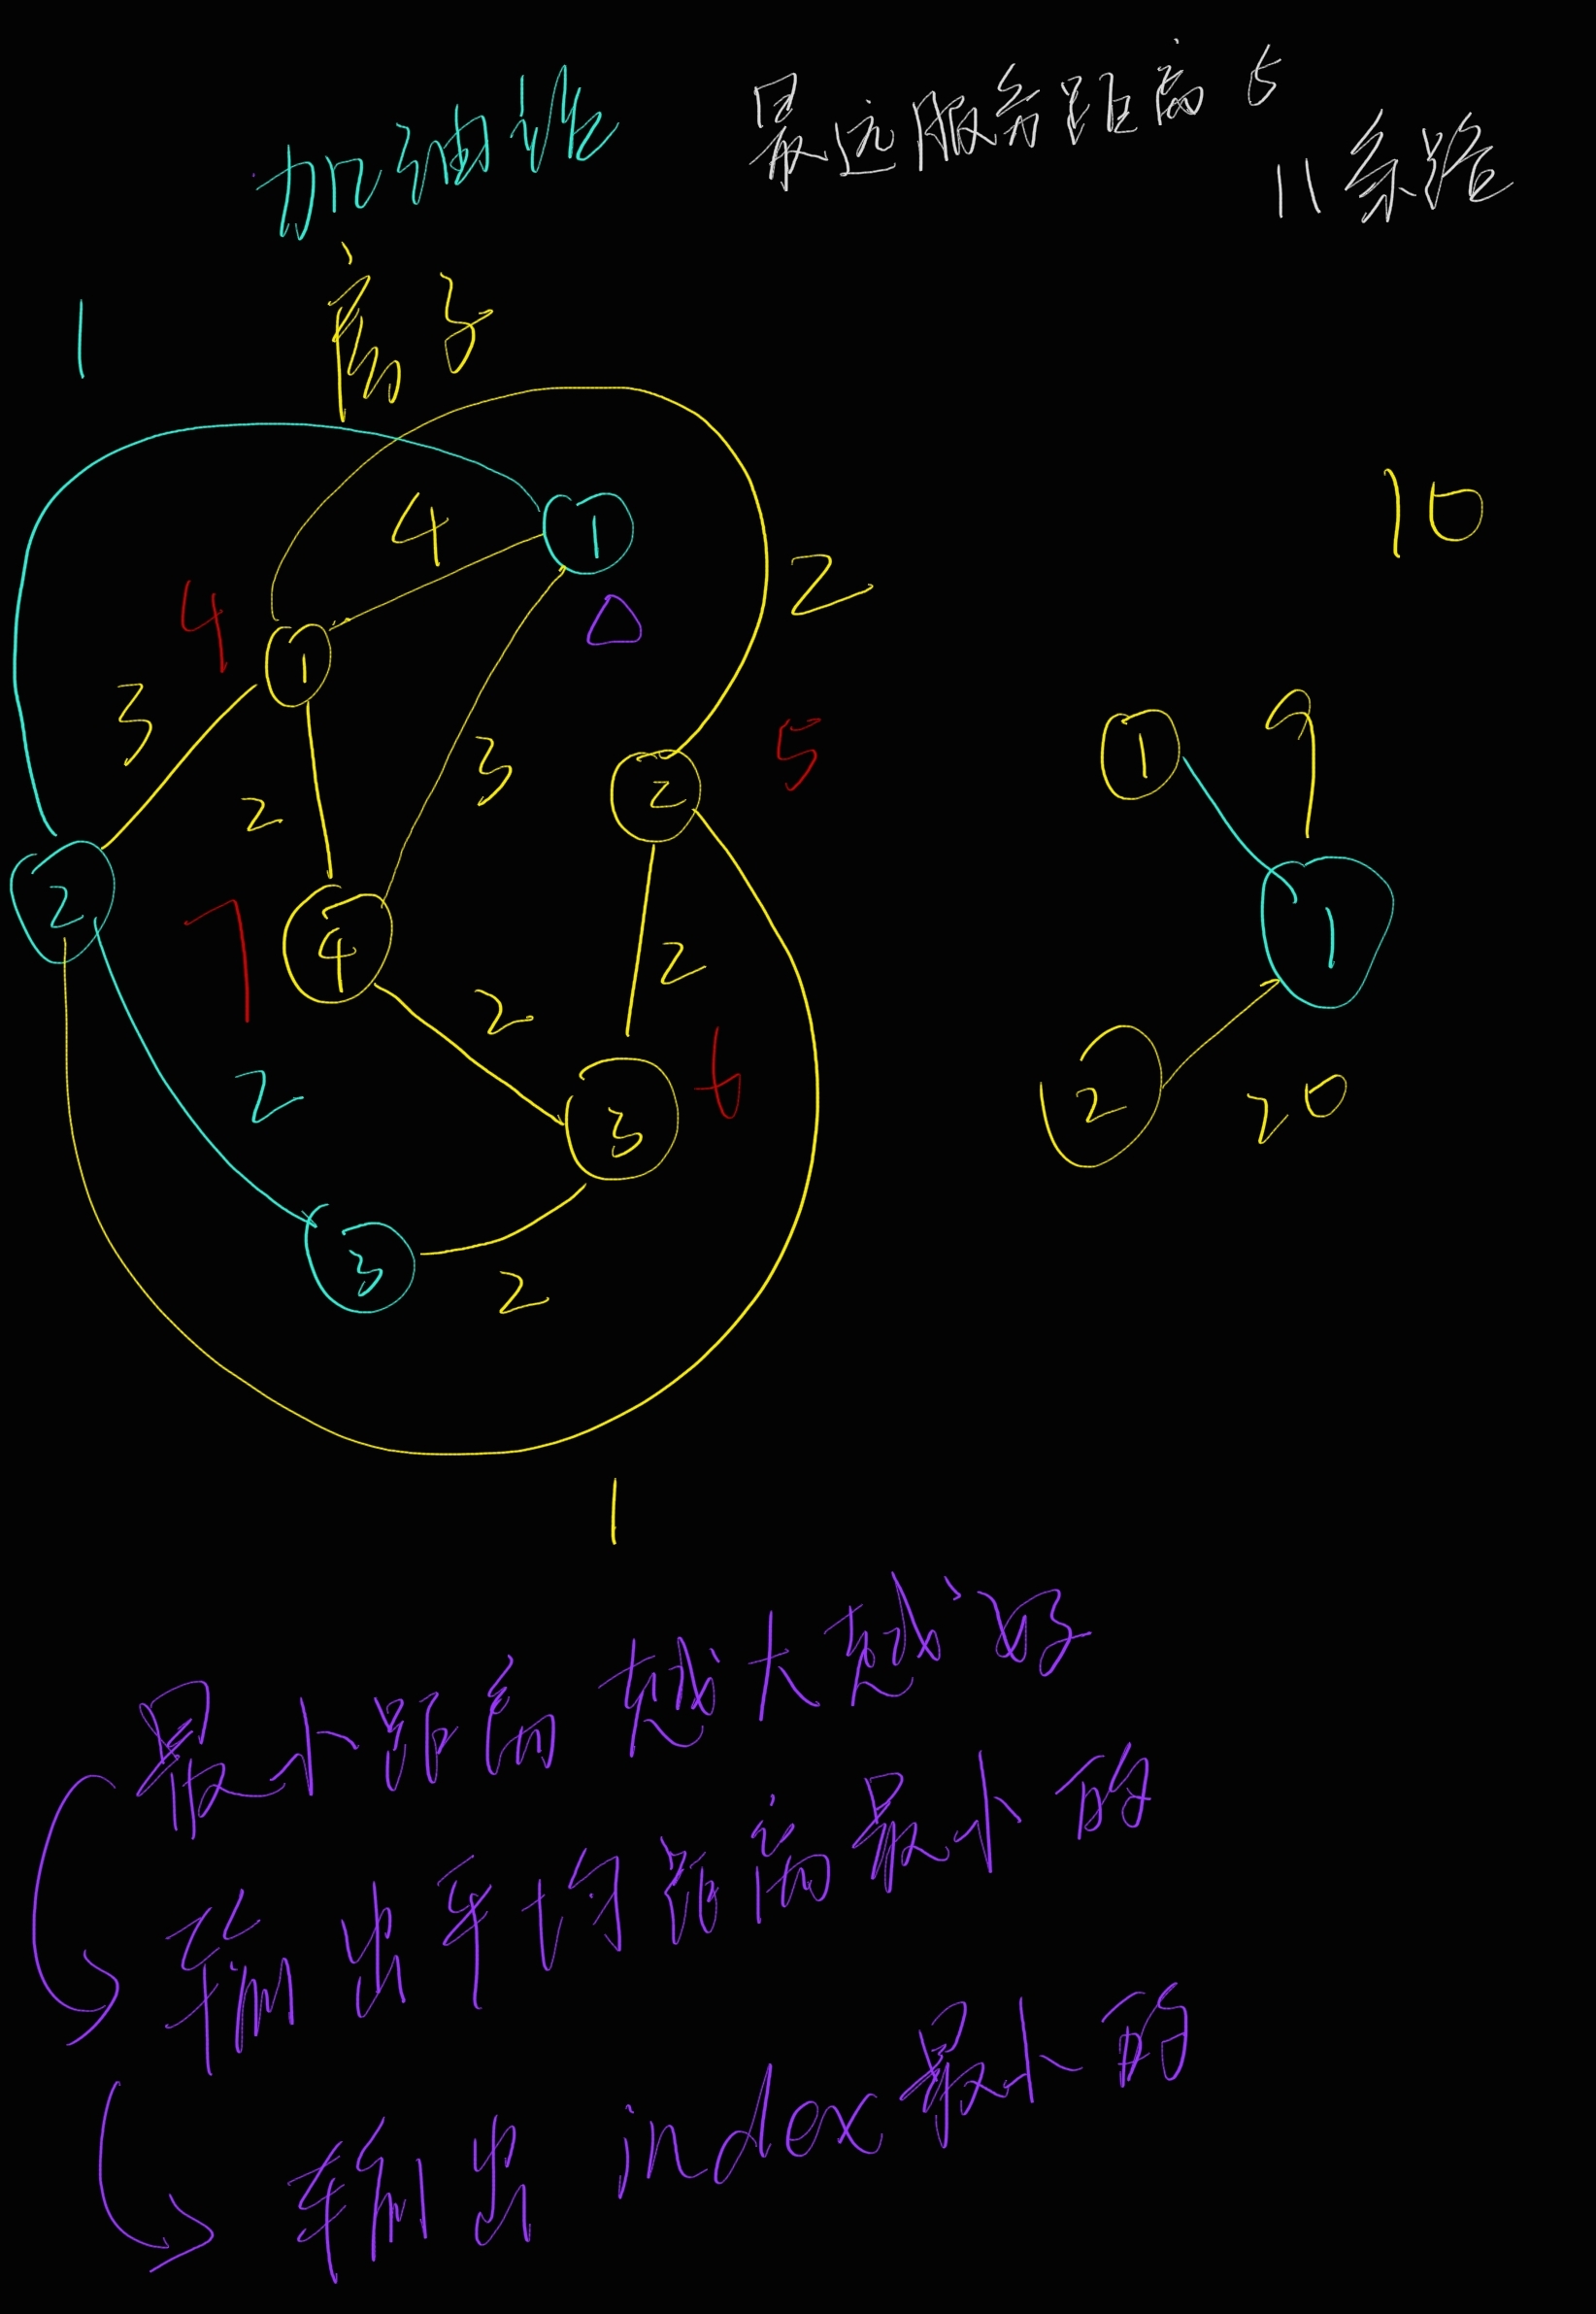 加油站 最远服务距离 5
11条路
房子
1
4
1
10
2
4
1
3
3
5
2
2
9
1
1
2
7
4
2
2
6
2
3
2
20
2
3
2
1
最小距离越大越好
输出平均距离最小的
输出 index最小的